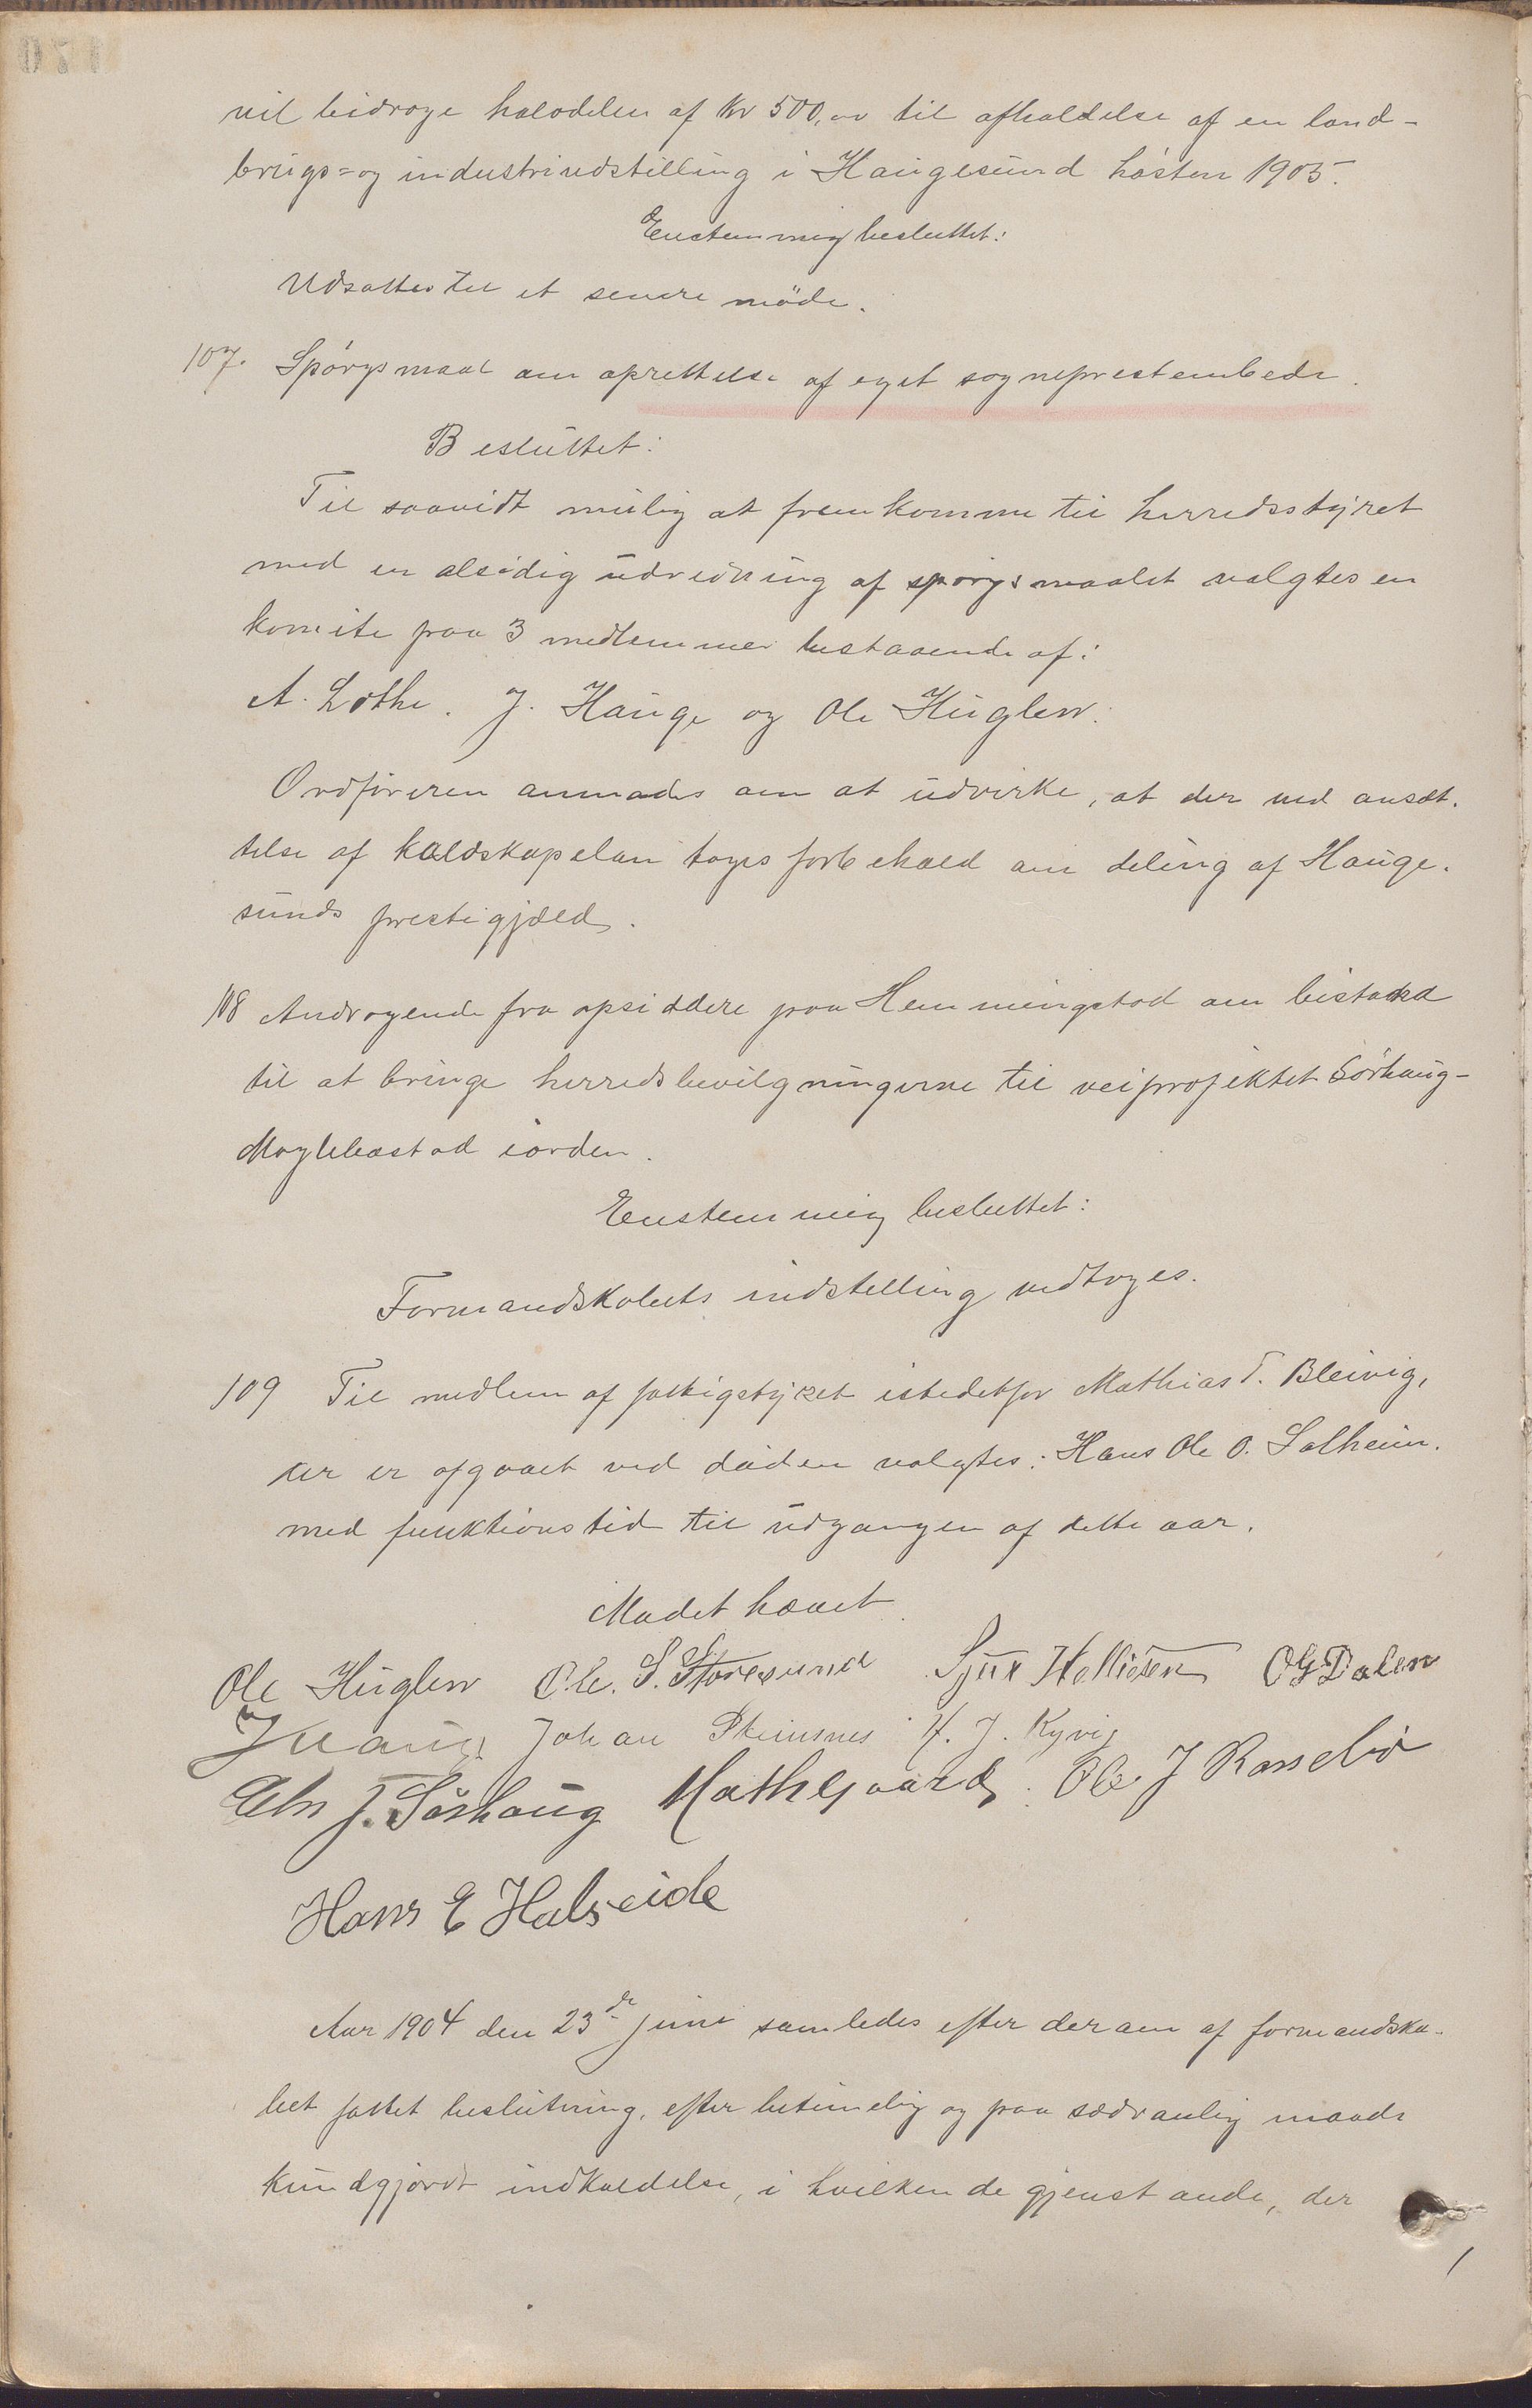 vil bidrage halvdelen af Kr 500,00 til afholdelse af en land-
brugs= og industriudstilling i Haugesund høsten 1905.
Enstemmig besluttet:
Udsættes til et senere møde.
107. Spørgsmaal om oprettelse af eget sogneprestembede.
Besluttet:
Til saavidt mulig at fremkomme til herredsstyret
med en alsidig udredning af spørgsmaalet valgtes en
komite paa 3 medlemmer bestaaende af:
A. Lothe. J. Hauge og Ole Huglen.
Ordføreren anmodes om at udvirke, at der ved ansæt-
telse af kaldskapelan tages forbehold om deling af Hauge-
sunds prestegjæld.
108 Andragende fra opsiddere paa Hemmingstad om bistand
til at bringe herredsbevilgningerne til veiprojektet Sørhaug-
Møglebæstad iorden.
Enstemmig besluttet:
Formandskabets indstilling vedtoges.
109 Til medlem af fattigstyret istedetfor Mathias T. Bleivig,
der er afgaaet ved døden valgtes: Hans Ole O. Solheim.
med funktionstid til udgangen af dette aar.
Mødet hævet
Ole Huglen Ole. S. Storesund Sjur Helliesen OG Dalen
J Hauge Johan Steinsnes H. J. Kyvig
Elis J. Sørhaug Math Gaard. Ole J Rossebø
Hans E Halseide
Aar 1904 den 23de juni samledes efter derom af formandska-
bet fattet beslutning, efter betimelig og paa sædvanlig maade
kundgjordt indkaldelse, i hvilken de gjenstande, der